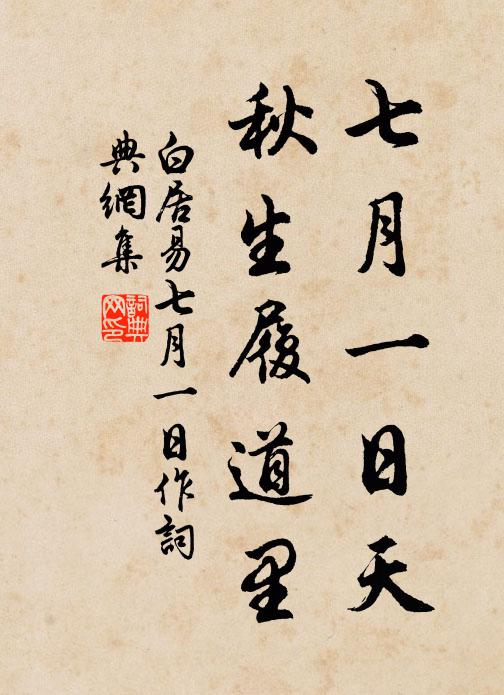 七月一日天
秋生履道里
白居易七月一日作詞
典網集
詞典
网印